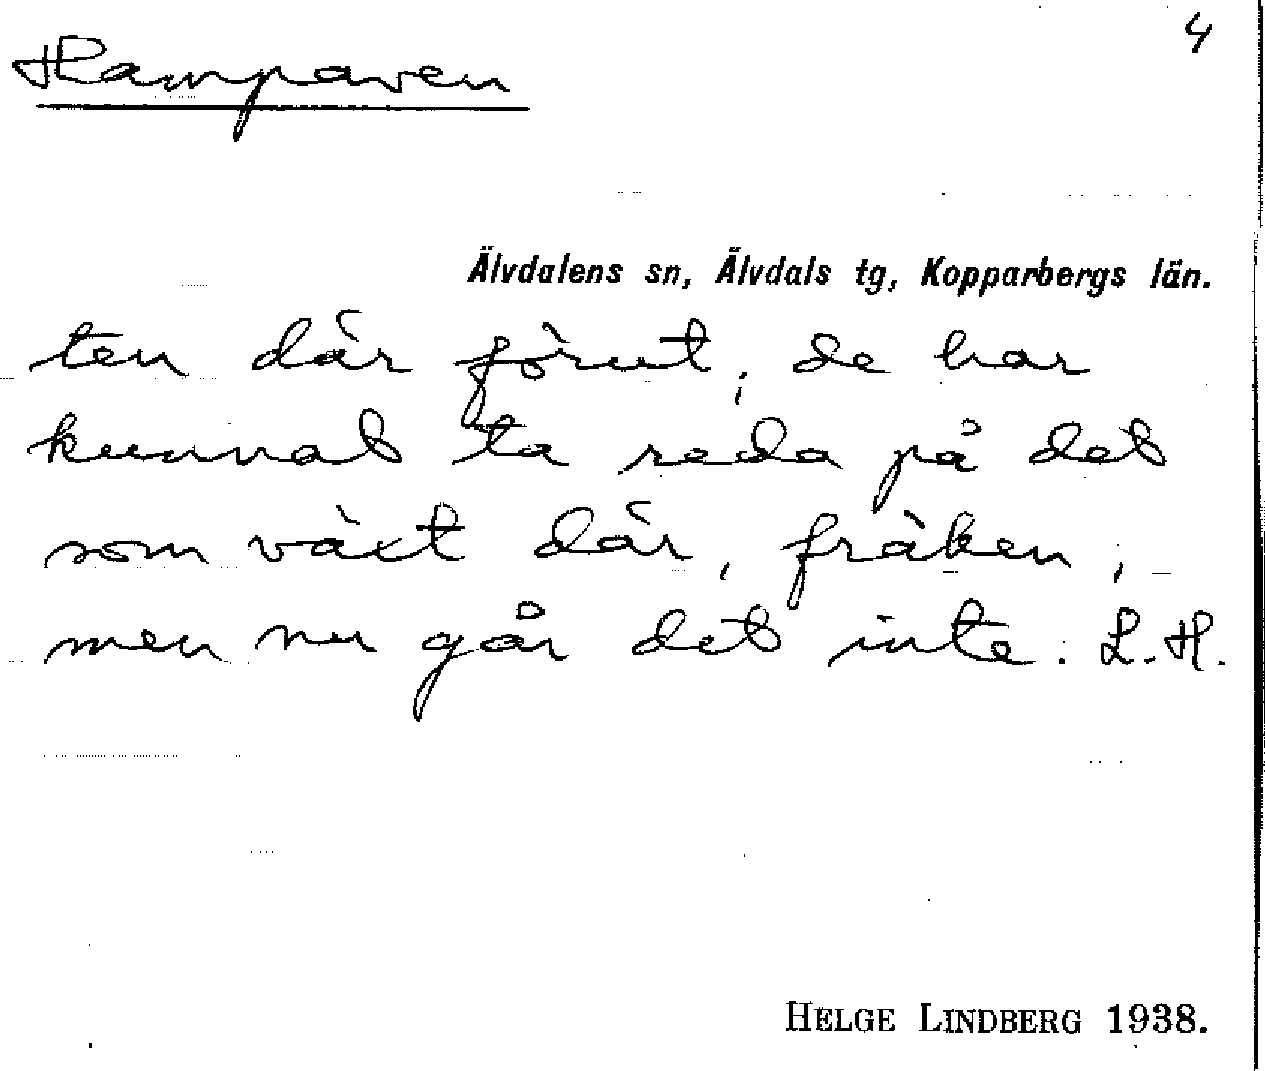 4
Hampaven
Älvdalens sn, Älvdals tg, Kopparbergs län.
ten där förut, de har
kunnat ta reda på det
som växt där, fräken,
men nu går det inte. L.H.
HELGE LINDBERG 1938.